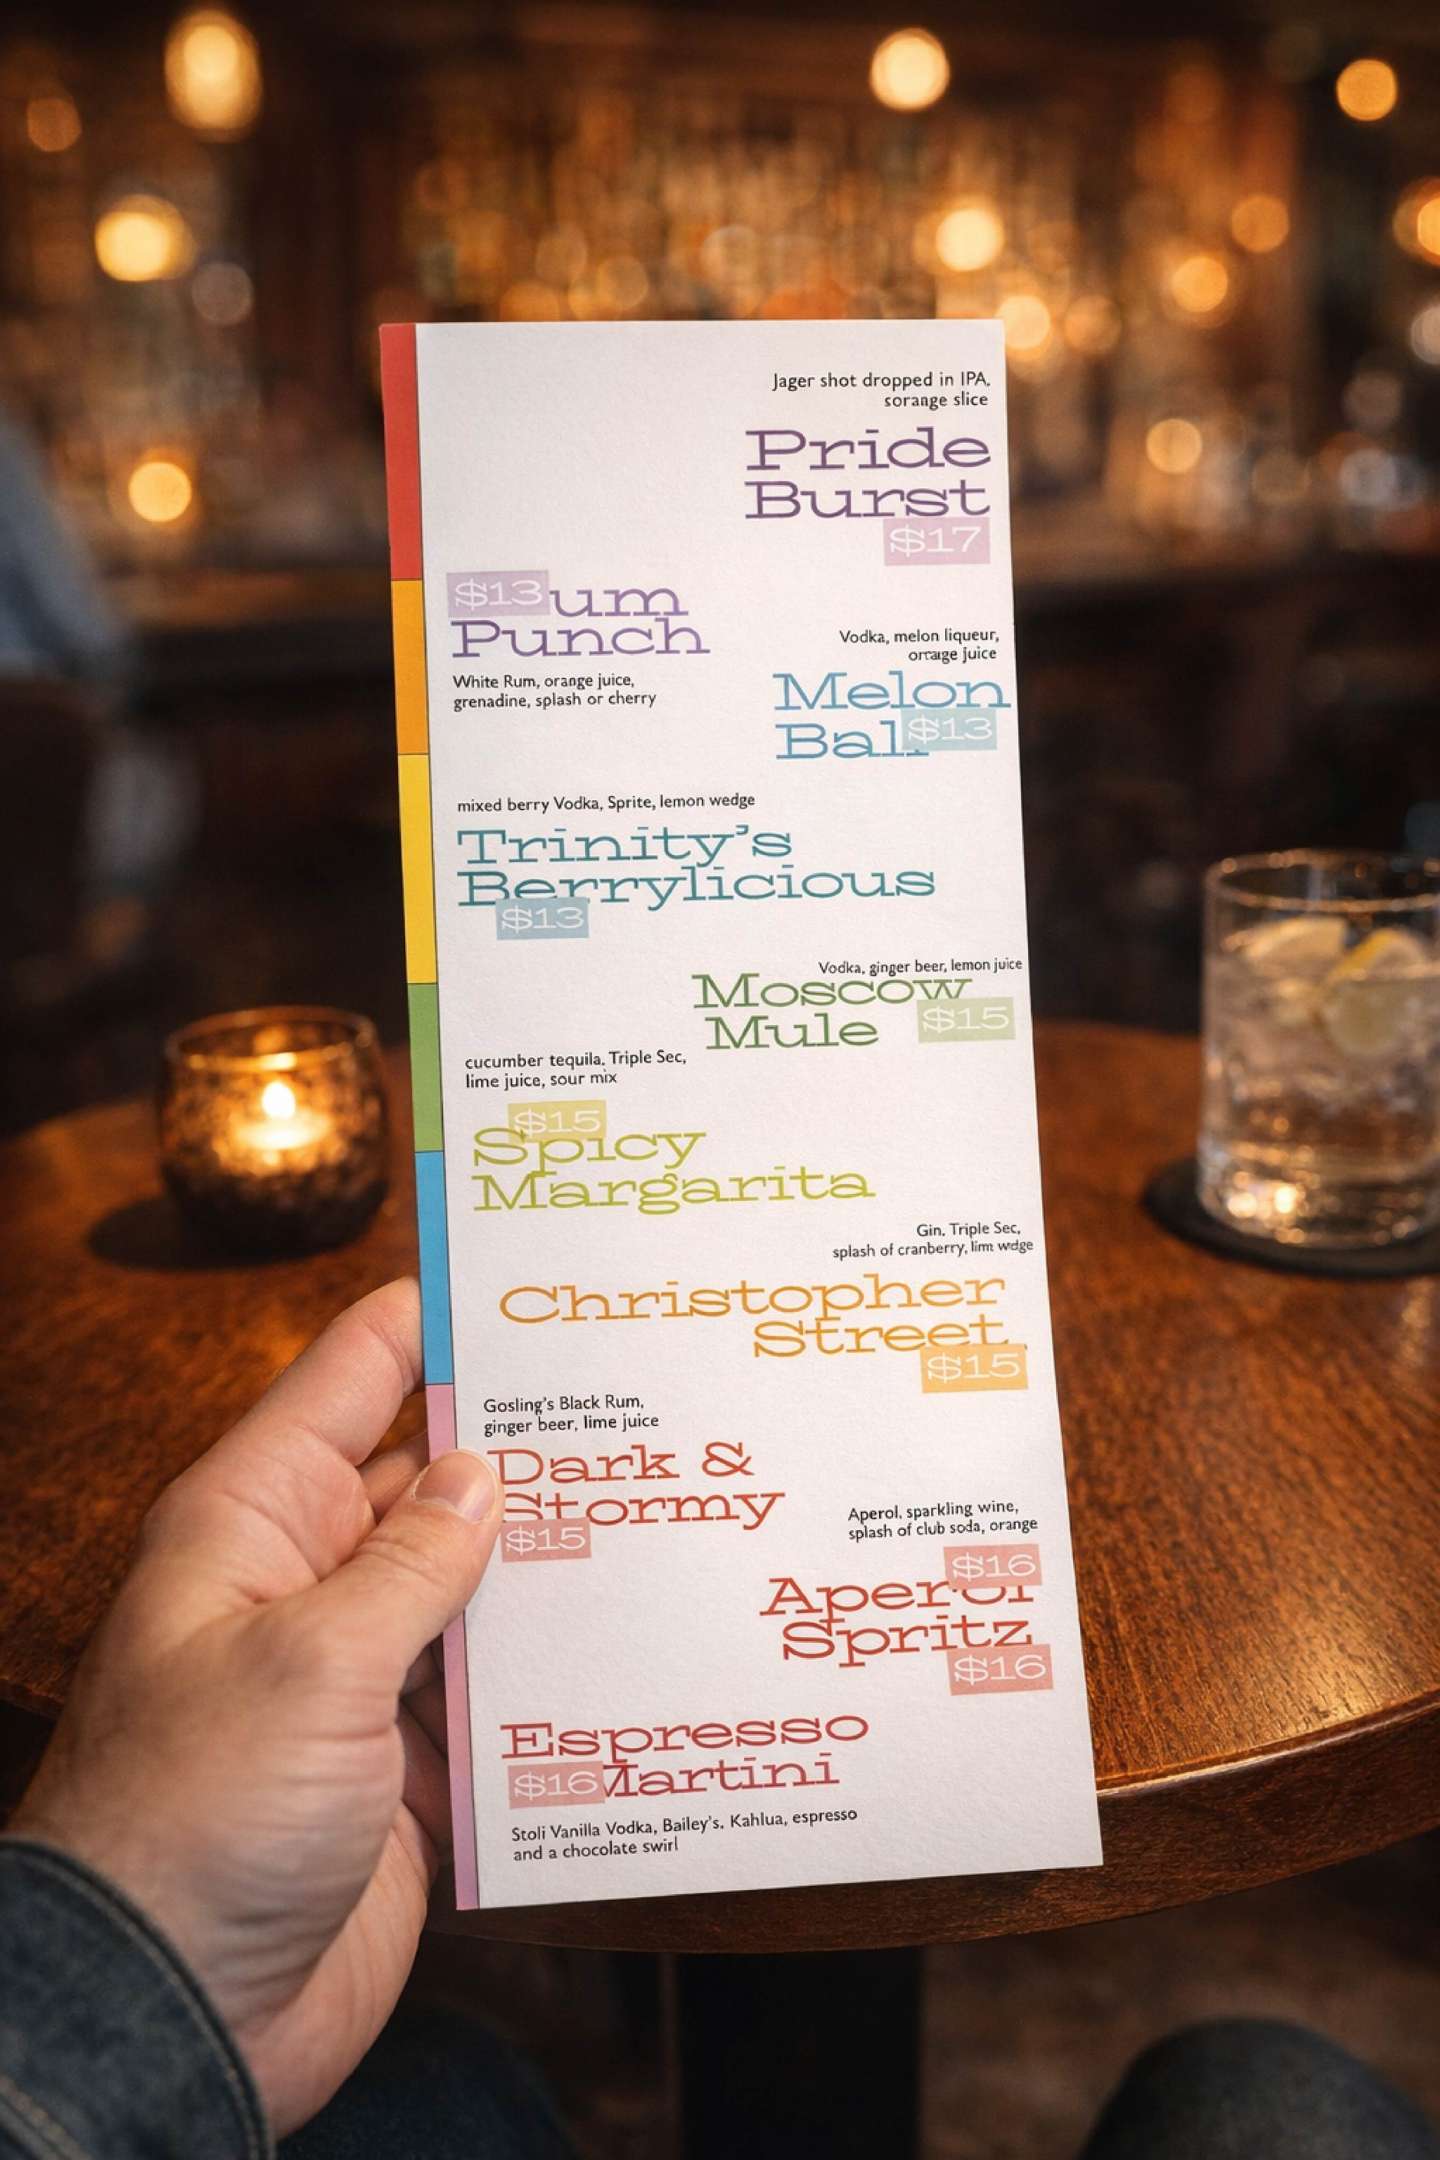 Jager shot dropped in IPA,
sorange slice
Pride
Burst
$17
$13 um
Punch
White Rum, orange juice,
grenadine, splash or cherry
Vodka, melon liqueur,
orange juice
Melon
Ball $13
mixed berry Vodka, Sprite, lemon wedge
Trinity's
Berrylicious
$13
Vodka, ginger beer, lemon juice
Moscow
Mule $15
cucumber tequila, Triple Sec,
lime juice, sour mix
$15
Spicy
Margarita
Gin, Triple Sec,
splash of cranberry, lim wdge
Christopher
Street
$15
Gosling's Black Rum,
ginger beer, lime juice
Dark &
Stormy
$15
Aperol, sparkling wine,
splash of club soda, orange
$16
Aperol
Spritz
$16
Espresso
$16 Martini
Stoli Vanilla Vodka, Bailey's, Kahlua, espresso
and a chocolate swirl